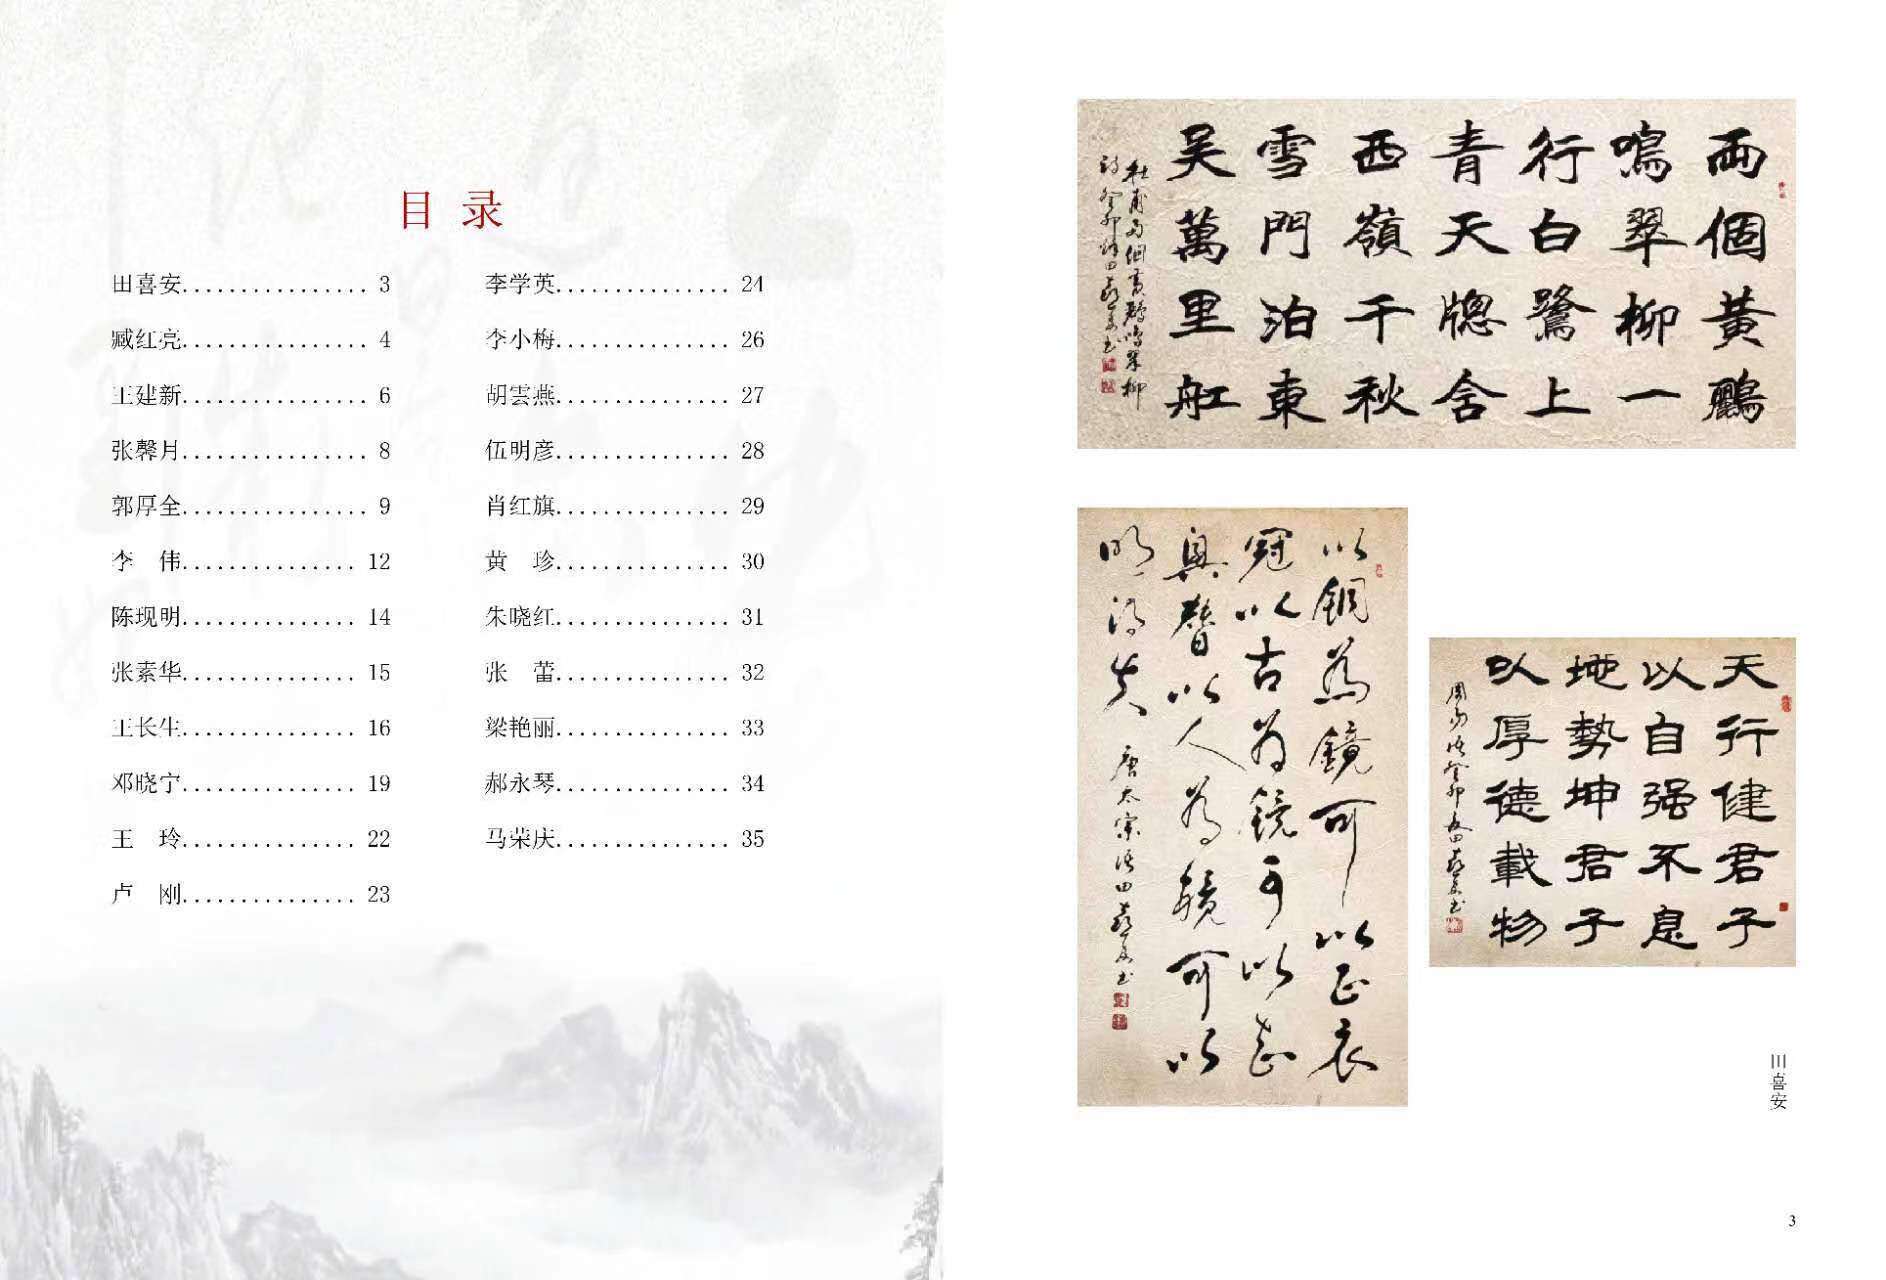 目录
田喜安................ 3
臧红亮................ 4
王建新................ 6
张馨月................ 8
郭厚全................ 9
李　伟............... 12
陈现明............... 14
张素华............... 15
王长生............... 16
邓晓宁............... 19
王　玲............... 22
卢　刚............... 23
李学英............... 24
李小梅............... 26
胡雲燕............... 27
伍明彦............... 28
肖红旗............... 29
黄　珍............... 30
朱晓红............... 31
张　蕾............... 32
梁艳丽............... 33
郝永琴............... 34
马荣庆............... 35
兩個黃鸝
鳴翠柳一
行白鷺上
青天窗含
西嶺千秋
雪門泊東
吴萬里舡
杜甫兩個黃鸝鳴翠柳
詩癸卯 田喜安书
以銅為鏡可以正衣
冠以古為鏡可以知
興替以人為鏡可以
明得失
唐太宗語田喜安书
天行健君子
以自强不息
地勢坤君子
以厚德載物
周易語癸卯 田喜安书
田喜安
3